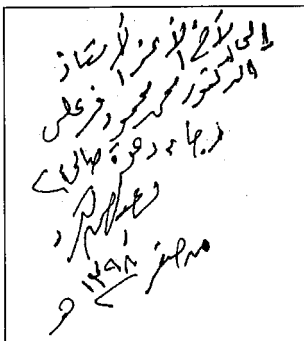 إلى الأخ الأعز الأستاذ
الدكتور محمد محمود فرغلي
رجاء دعوة صالحة
صفر ١٣٩٨ هـ